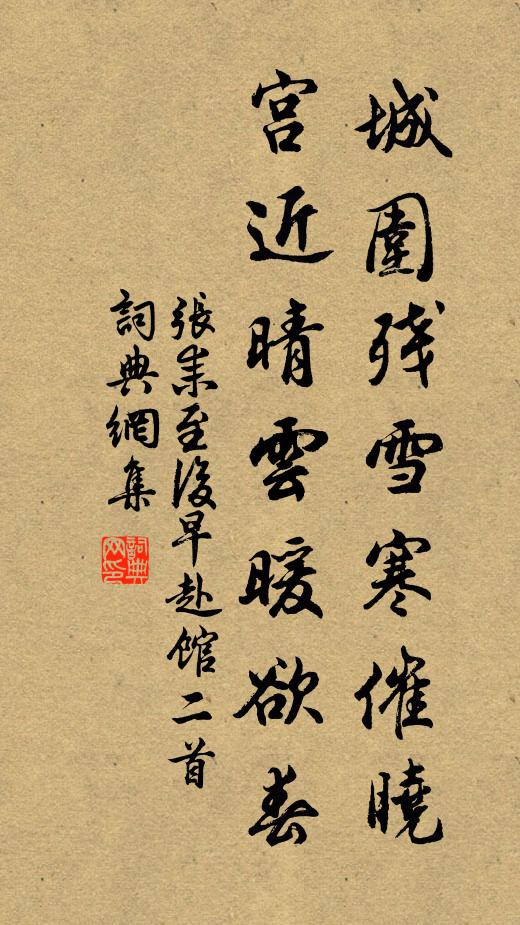 城圍残雪寒催曉
宮近晴雲暖欲春
張耒至後早赴館二首
詞典網集
詞典网印